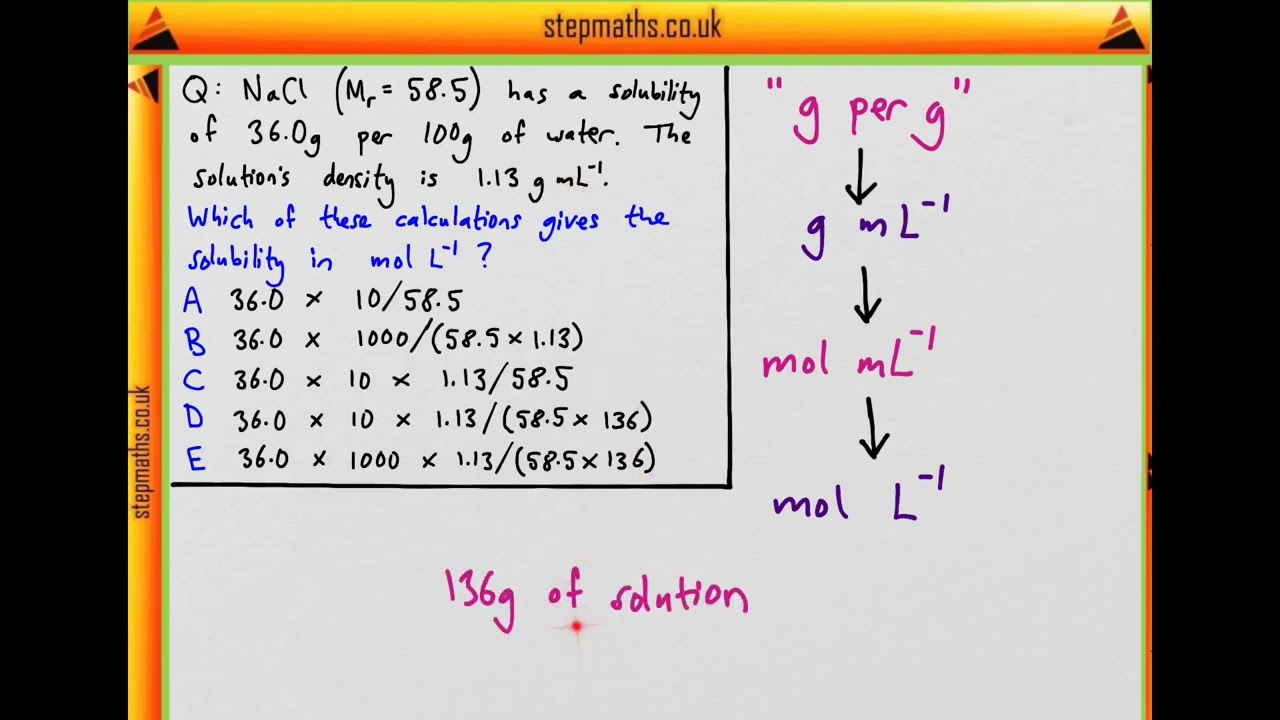 stepmaths.co.uk
Q: NaCl (Mr = 58.5) has a solubility
of 36.0g per 100g of water. The
solution's density is 1.13 g mL⁻¹.
Which of these calculations gives the
solubility in mol L⁻¹ ?
A 36.0 × 10/58.5
B 36.0 × 1000/(58.5 × 1.13)
C 36.0 × 10 × 1.13/58.5
D 36.0 × 10 × 1.13/(58.5 × 136)
E 36.0 × 1000 × 1.13/(58.5 × 136)
"g per g"
g mL⁻¹
mol mL⁻¹
mol L⁻¹
136g of solution
stepmaths.co.uk